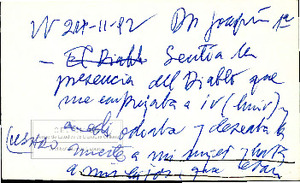 24-11-92 Dn Joaquín
- El Diablo Sentía la
presencia del Diablo que
me empujaba a ir (huir) y
odiaba y deseaba la
muerte a mi mujer y hasta
a mis hijos, que